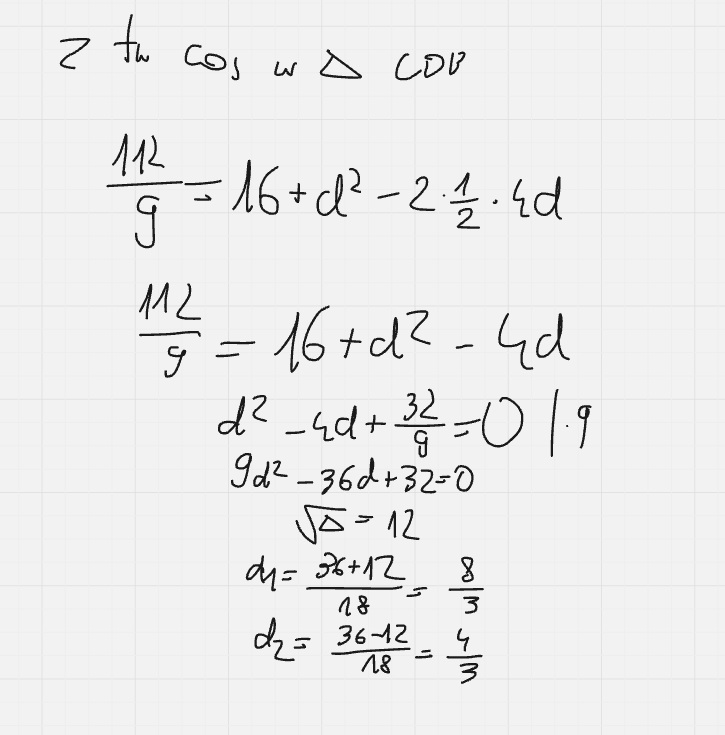 z tw cos w △ CDB
112/9 = 16 + d² - 2 · 1/2 · 4d
112/9 = 16 + d² - 4d
d² - 4d + 32/9 = 0 | · 9
9d² - 36d + 32 = 0
√△ = 12
d₁ = (36+12)/18 = 8/3
d₂ = (36-12)/18 = 4/3